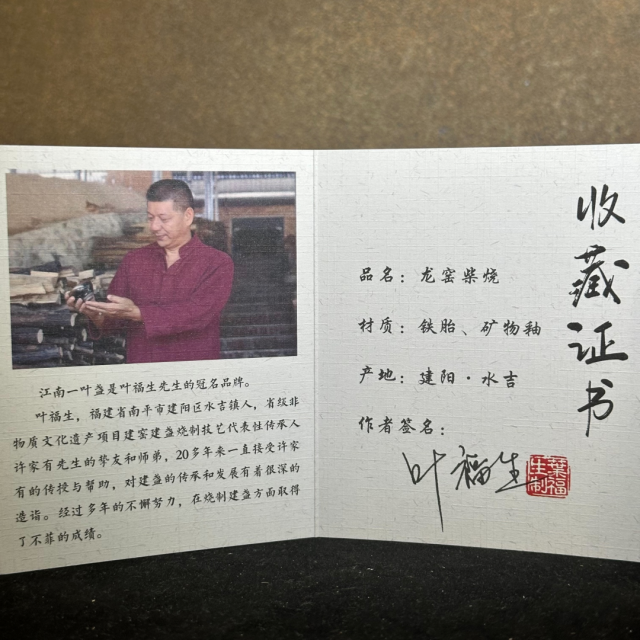 江南一叶盏是叶福生先生的冠名品牌。
叶福生，福建省南平市建阳区水吉镇人，省级非
物质文化遗产项目建窑建盏烧制技艺代表性传承人
许家有先生的挚友和师弟，20多年来一直接受许家
有的传授与帮助，对建盏的传承和发展有着很深的
造诣。经过多年的不懈努力，在烧制建盏方面取得
了不菲的成绩。
收藏证书
品名：龙窑柴烧
材质：铁胎、矿物釉
产地：建阳·水吉
作者签名：
叶福生
葉福生制